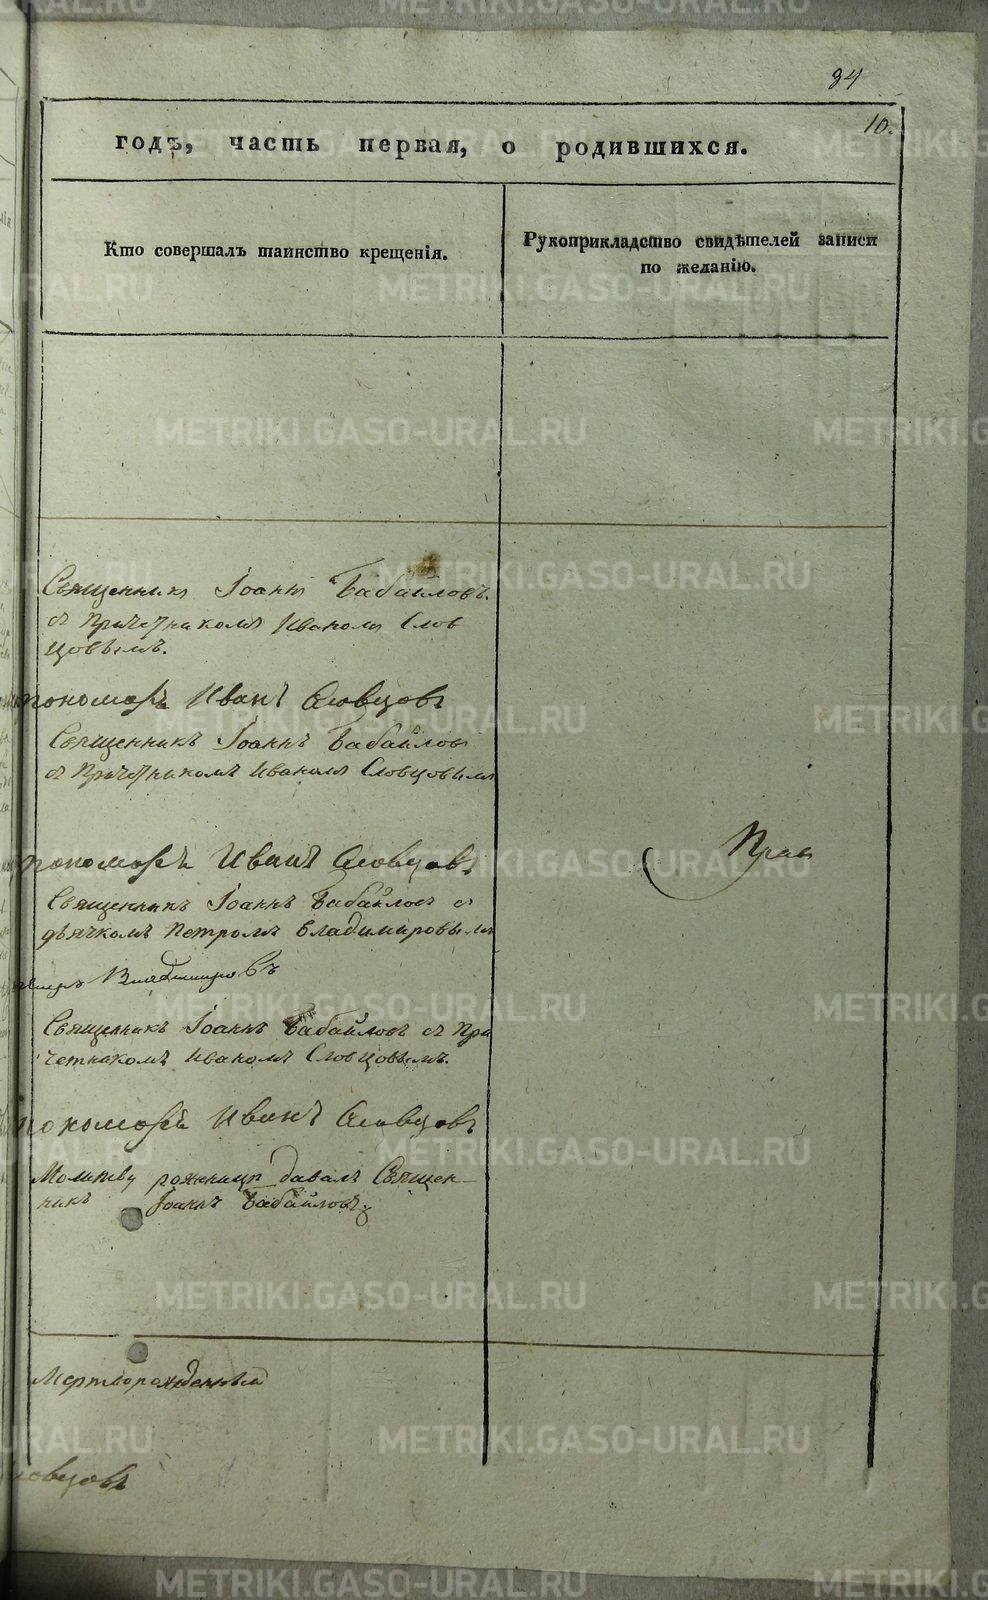 84
10.
годъ, часть первая, о родившихся.
Кто совершалъ таинство крещенія.
Рукоприкладство свидѣтелей записи
по желанію.
Священникъ Іоаннъ Бабайловъ.
съ Причетникомъ Иваномъ Слов
цовымъ.
пономарь Иванъ Словцовъ
Священникъ Іоаннъ Бабайловъ
съ Причетникомъ Иваномъ Словцовымъ
пономарь Иванъ Словцовъ
Прав
Священникъ Іоаннъ Бабайловъ с
дьячкомъ Петромъ Владимировымъ
Владимировъ
Священникъ Іоаннъ Бабайловъ съ При
четникомъ Иваномъ Словцовымъ.
пономарь Иванъ Словцовъ
Молитву роженицѣ давалъ Священ-
никъ Іоаннъ Бабайловъ
Мертворожденный
ловцовъ
METRIKI.GASO-URAL.RU